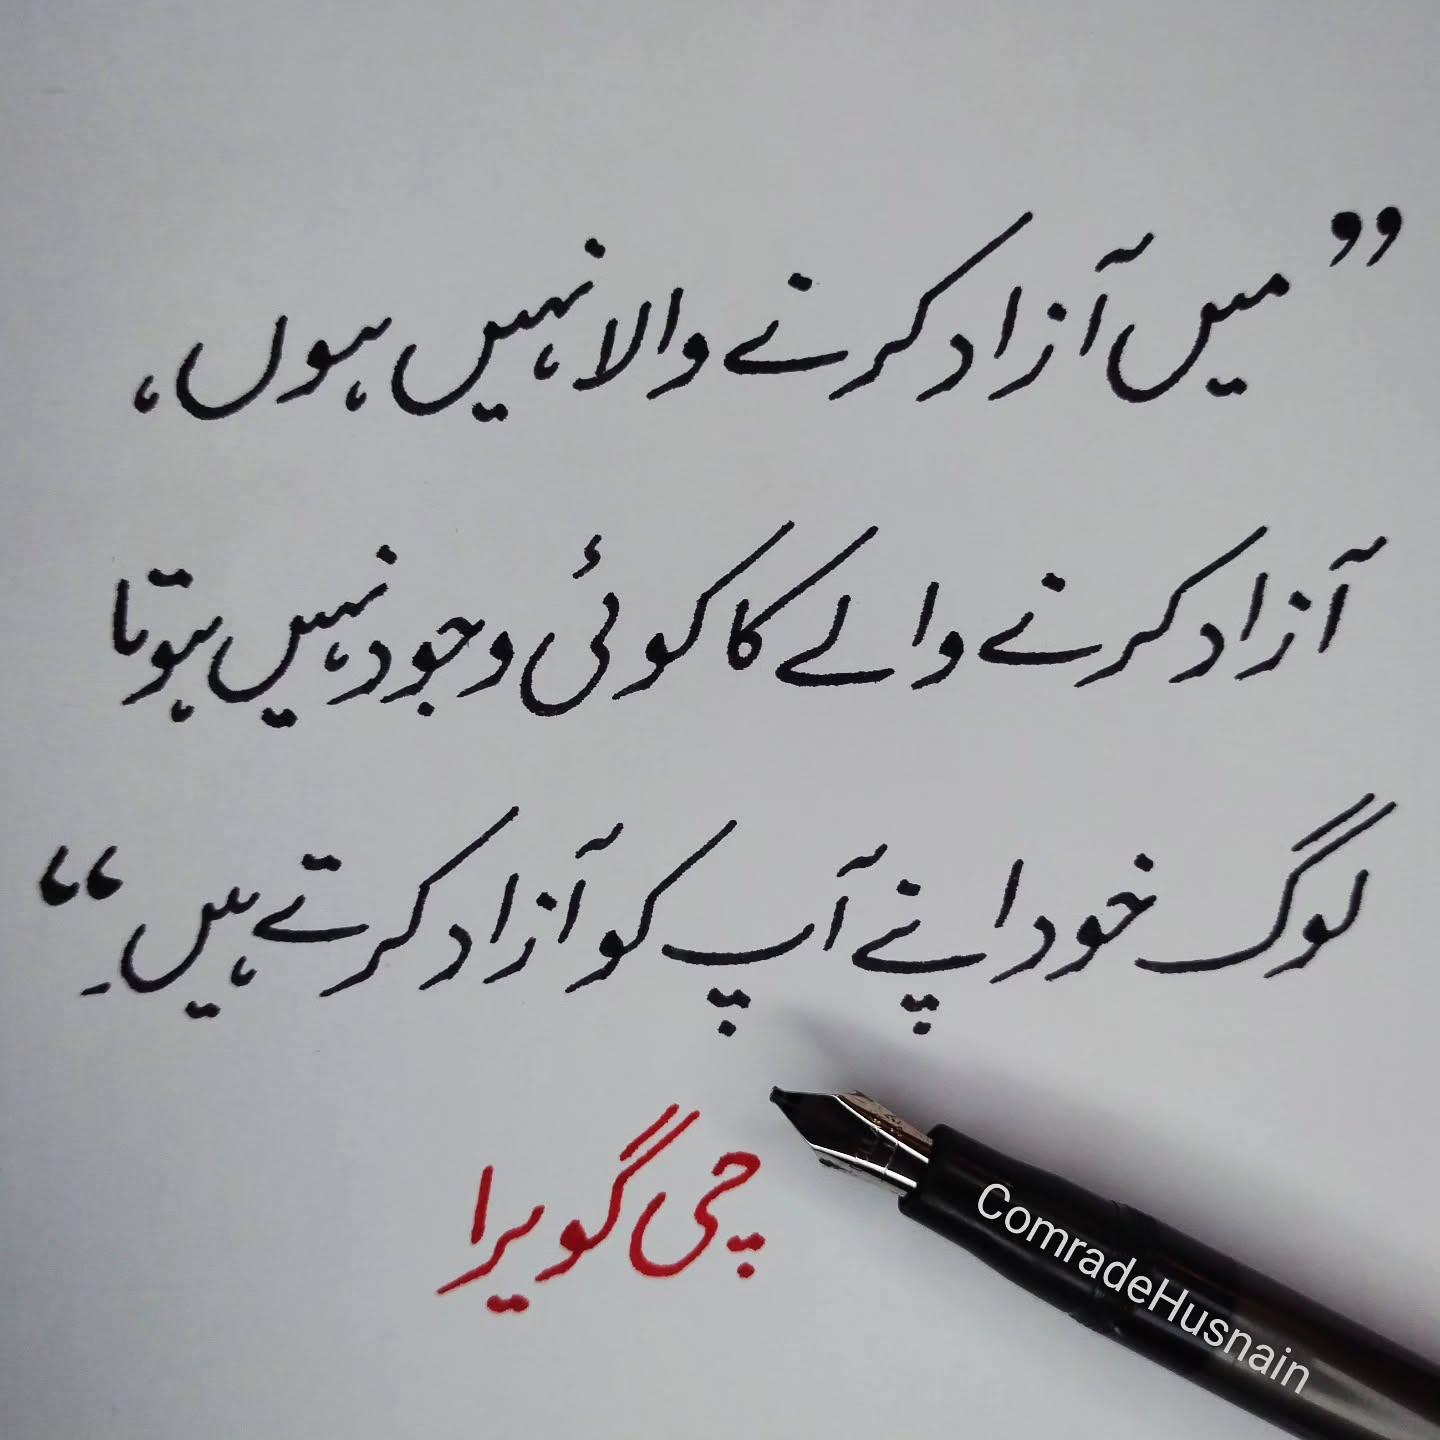 ”میں آزاد کرنے والا نہیں ہوں،
آزاد کرنے والے کا کوئی وجود نہیں ہوتا
لوگ خود اپنے آپ کو آزاد کرتے ہیں۔“
چی گویرا
ComradeHusnain